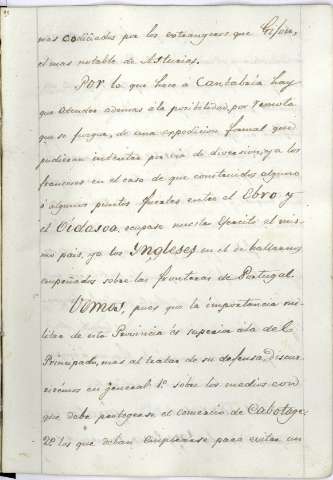 mas codiciados por los estrangeros que Gijon,
el mas notable de Asturias.
Por lo que hace á Cantabria hay
que atender ademas á la posibilidad, por remota
que se juzgue, de una expedicion formal que
pudieran intentar por via de diversion, ya los
franceses en el caso de que construidos alguno
ó algunos puntos fuertes entre el Ebro y
el Vidasoa, ocupase nuestro Ejercito el mis
mo pais, ya los Yngleses en el de hallarnos
empeñados sobre las fronteras de Portugal.
Vemos, pues que la importancia mi
litar de esta Provincia es superior á la del
Principado, mas al tratar de su defensa, discur
riremos en general 1º sobre los medios con
que debe protegerse el comercio de Cabotage:
2º los que deban emplearse para evitar un